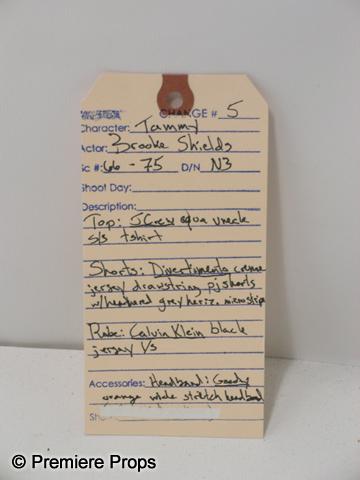 CHANGE # 5
Character: Tammy
Actor: Brooke Shields
Sc #: 66 - 75 D/N N3
Shoot Day:
Description:
Top: JCrew aqua vneck
s/s tshirt
Shorts: Divertimento creme
jersey drawstring pj shorts
w/heathered grey horiz. microstripe
Robe: Calvin Klein black
jersey 1/s
Accessories: Headband: Goody
orange wide stretch headband
© Premiere Props